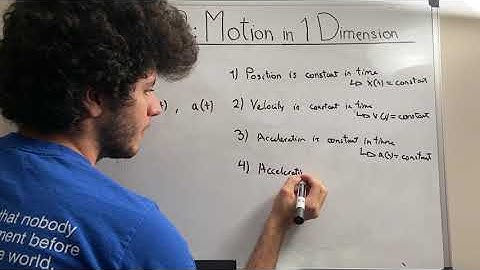 : Motion in 1 Dimension
1) Position is constant in time
↳ x(t) = constant
), a(t)
2) Velocity is constant in time
↳ v(t) = constant
3) Acceleration is constant in time
↳ a(t) = constant
4) Accelerati
that nobody
ment before
e world.